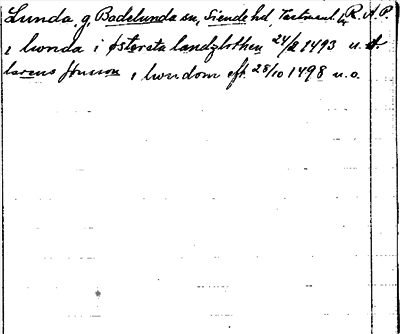 Lunda, g, Badelunda sn, Siende hd, Västmanl. R. A. P.
i lwnda i østersta landzlothen 24/2 1493 u.
larens Jnsson i lwndom eft. 28/10 1498 u.o.